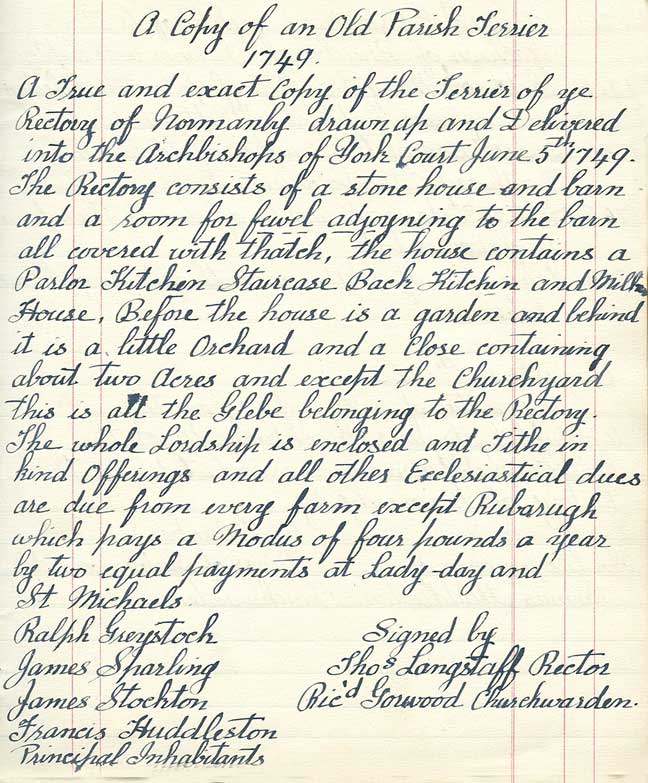 A Copy of an Old Parish Terrier
1749.
A True and exact Copy of the Terrier of ye
Rectory of Normanby drawn up and Delivered
into the Archbishops of York Court June 5th 1749.
The Rectory consists of a stone house and barn
and a room for fewel adjoyning to the barn
all covered with thatch, the house contains a
Parlor Kitchen Staircase Back Kitchin and Milk
House, Before the house is a garden and behind
it is a little Orchard and a Close containing
about two Acres and except the Churchyard
this is all the Glebe belonging to the Rectory.
The whole Lordship is enclosed and Tithe in
kind Offerings and all other Ecclesiastical dues
are due from every farm except Rubarugh
which pays a Modus of four pounds a year
by two equal payments at Lady-day and
St Michaels.
Ralph Greystock Signed by
James Sparling Thos Langstaff Rector
James Stockton Ric'd Gorwood Churchwarden.
Francis Huddleston
Principal Inhabitants